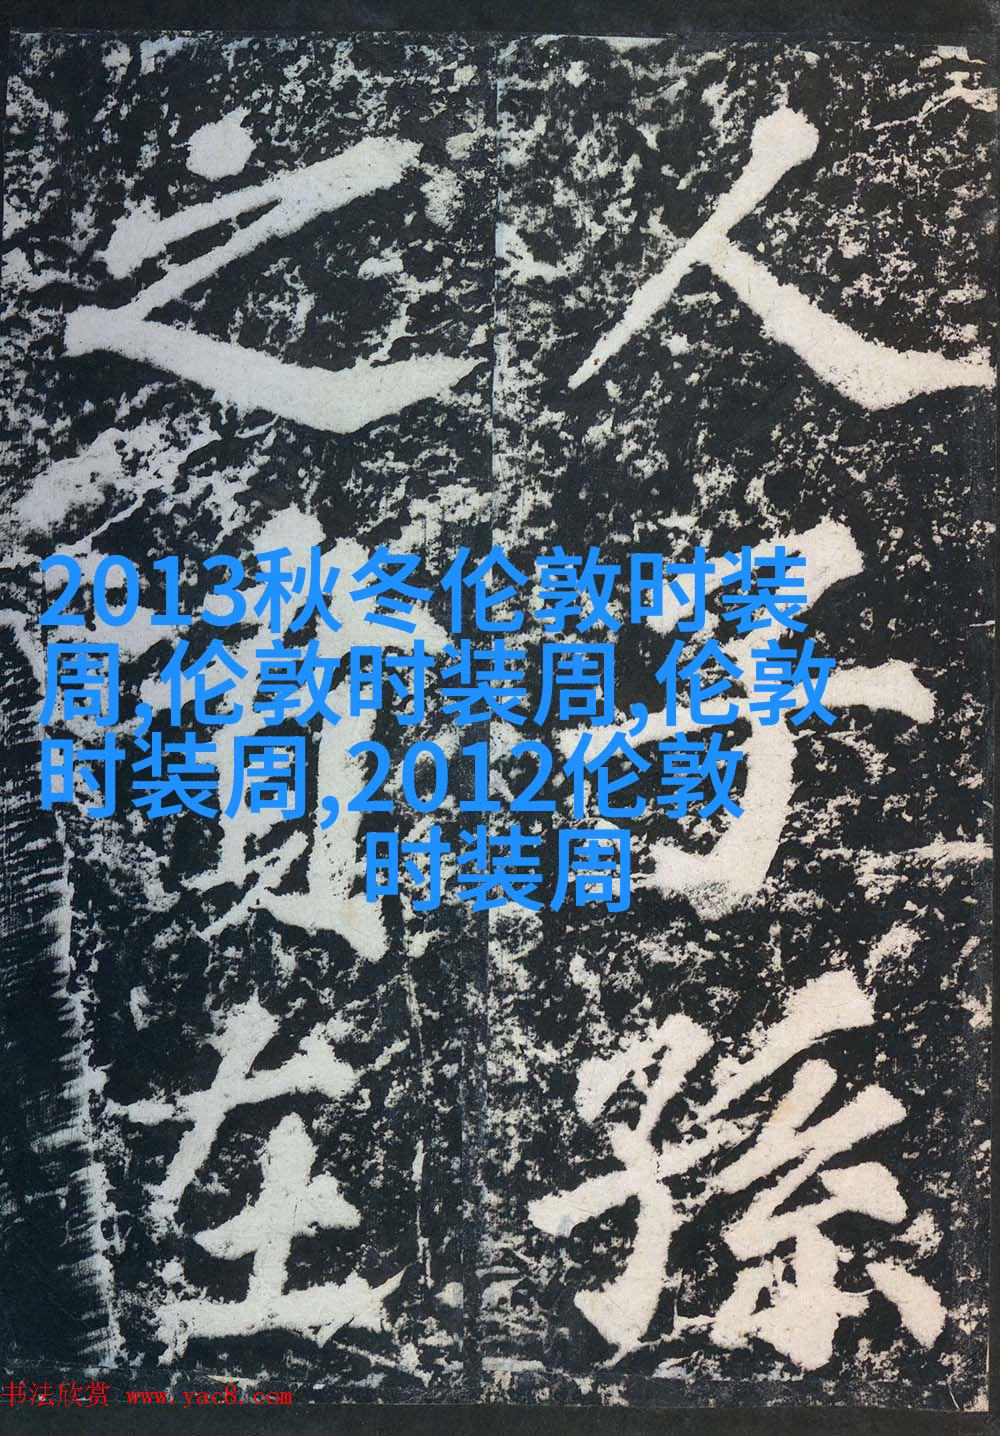 人子孫
之在
2013秋冬伦敦时装
周,伦敦时装周,伦敦
时装周,2012伦敦
时装周
书法欣赏 www.yac8.com